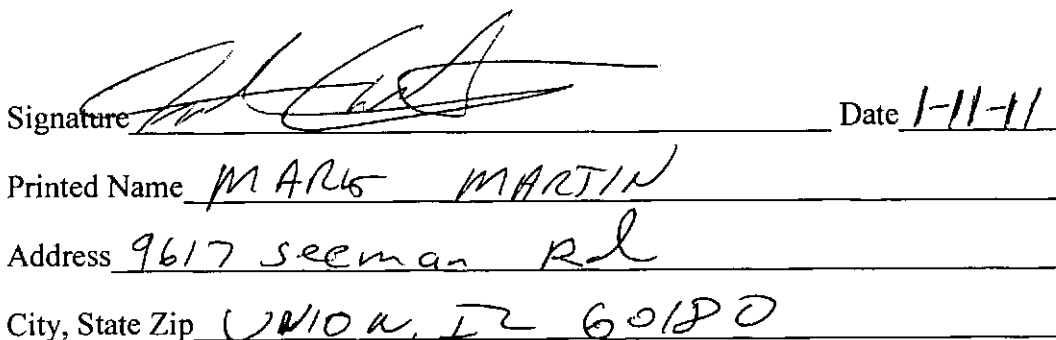 Signature Date 1-11-11
Printed Name MARK MARTIN
Address 9617 Seeman Rd
City, State Zip UNION, IL 60180